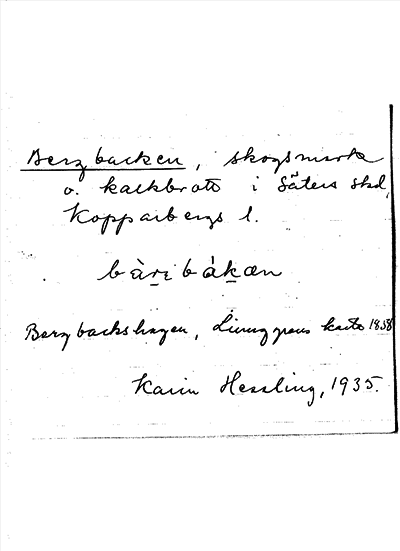 Bergbacken, skogsmark
o. kalkbrott i Säters skd,
Kopparbergs l.
bàribákæn
Bergbackshagen, Ljunggrens karta 1858
Karin Hessling, 1935.